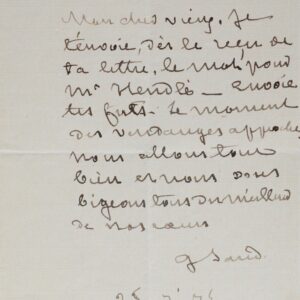 Mon cher vieux, je
t'envoie, dès le reçu de
ta lettre, le mot pour
Mr Hendlé — envoie
tes futs. Le moment
des vendanges approche
nous allons tous
bien et nous vous
bigeons tous du meilleur
de nos cœurs
G Sand